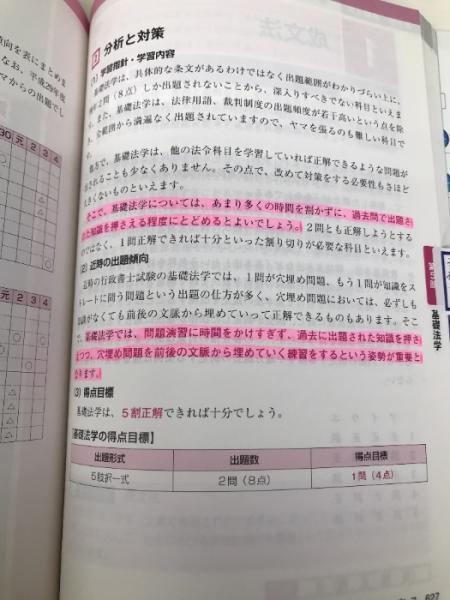 成文法
向を表にまとめま
なお、平成29年度
マからの出題でし
30 元 2 3 4
2 分析と対策
(1) 学習指針・学習内容
基礎法学は、具体的な条文があるわけではなく出題範囲がわかりづらい上に、
例年2問（8点）しか出題されないことから、深入りすべきでない科目といえま
す。また、基礎法学は、法律用語、裁判制度の出題頻度が若干高いという点を除
き、全範囲から満遍なく出題されていますので、ヤマを張るのも難しい科目で
す。
他方で、基礎法学は、他の法令科目を学習していれば正解できるような問題が
出されることも少なくありません。その点で、改めて対策をする必要性もさほど
大きくないものといえます。
そこで、基礎法学については、あまり多くの時間を割かずに、過去問で出題さ
れた知識を押さえる程度にとどめるとよいでしょう。2問とも正解しようとする
のではなく、1問正解できれば十分といった割り切りが必要な科目といえます。
(2) 近時の出題傾向
近時の行政書士試験の基礎法学では、1問が穴埋め問題、もう1問が知識をス
トレートに問う問題という出題の仕方が多く、穴埋め問題においては、必ずしも
知識がなくても前後の文脈から埋めていって正解できるものもあります。そこ
で、基礎法学では、問題演習に時間をかけすぎず、過去に出題された知識を押さ
えつつ、穴埋め問題を前後の文脈から埋めていく練習をするという姿勢が重要と
なります。
(3) 得点目標
基礎法学は、5割正解できれば十分でしょう。
【基礎法学の得点目標】
出題形式 出題数 得点目標
5肢択一式 2問（8点） 1問（4点）
基礎法学
627